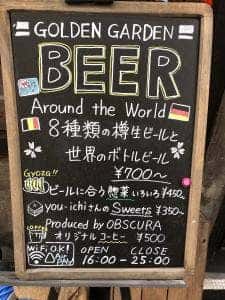 GOLDEN GARDEN
BEER
Around the World
8種類の樽生ビールと
世界のボトルビール
¥700〜
Gyoza!!
ビールに合う惣菜いろいろ¥450〜
you-ichiさんのSweets¥350〜
Produced by OBSCURA
coffee
オリジナルコーヒー ¥500
WiFi OK!
OPEN CLOSE
16:00-25:00